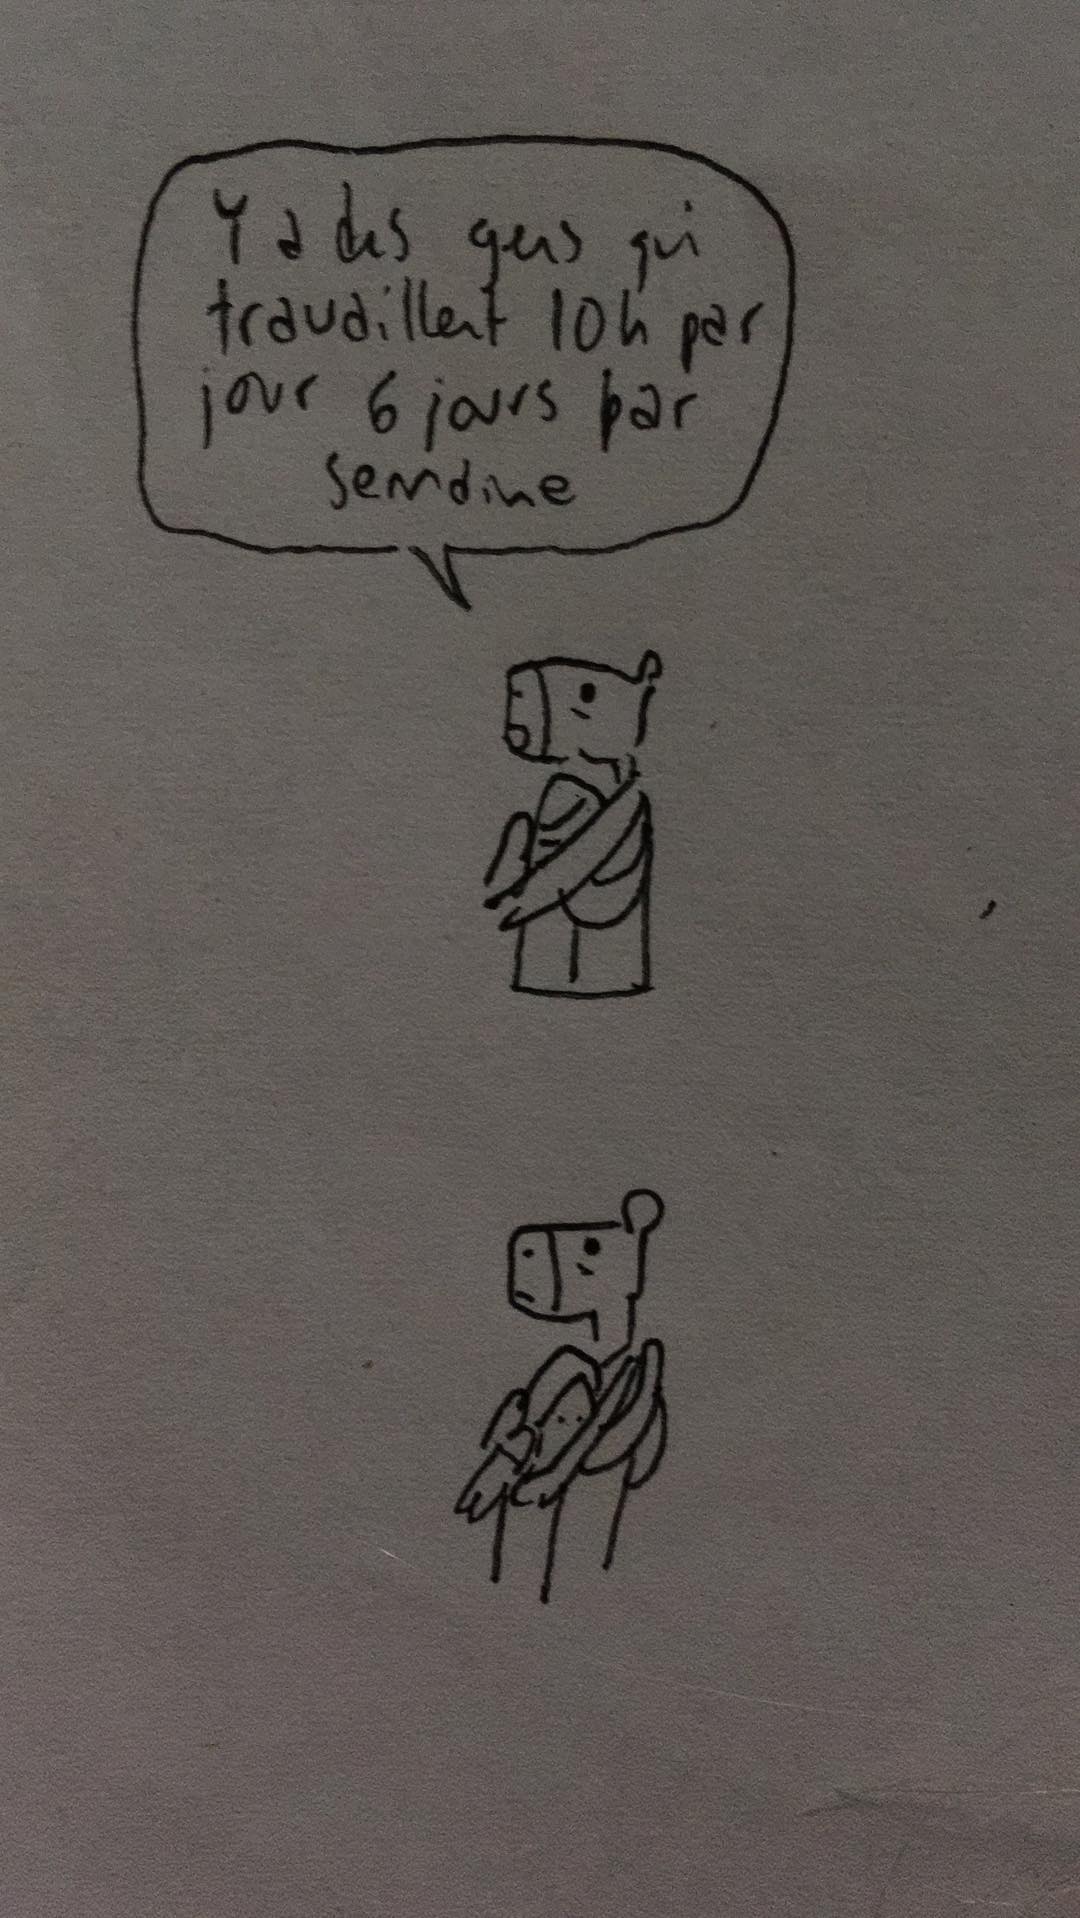 Y a des gens qui
travaillent 10h par
jour 6 jours par
semaine